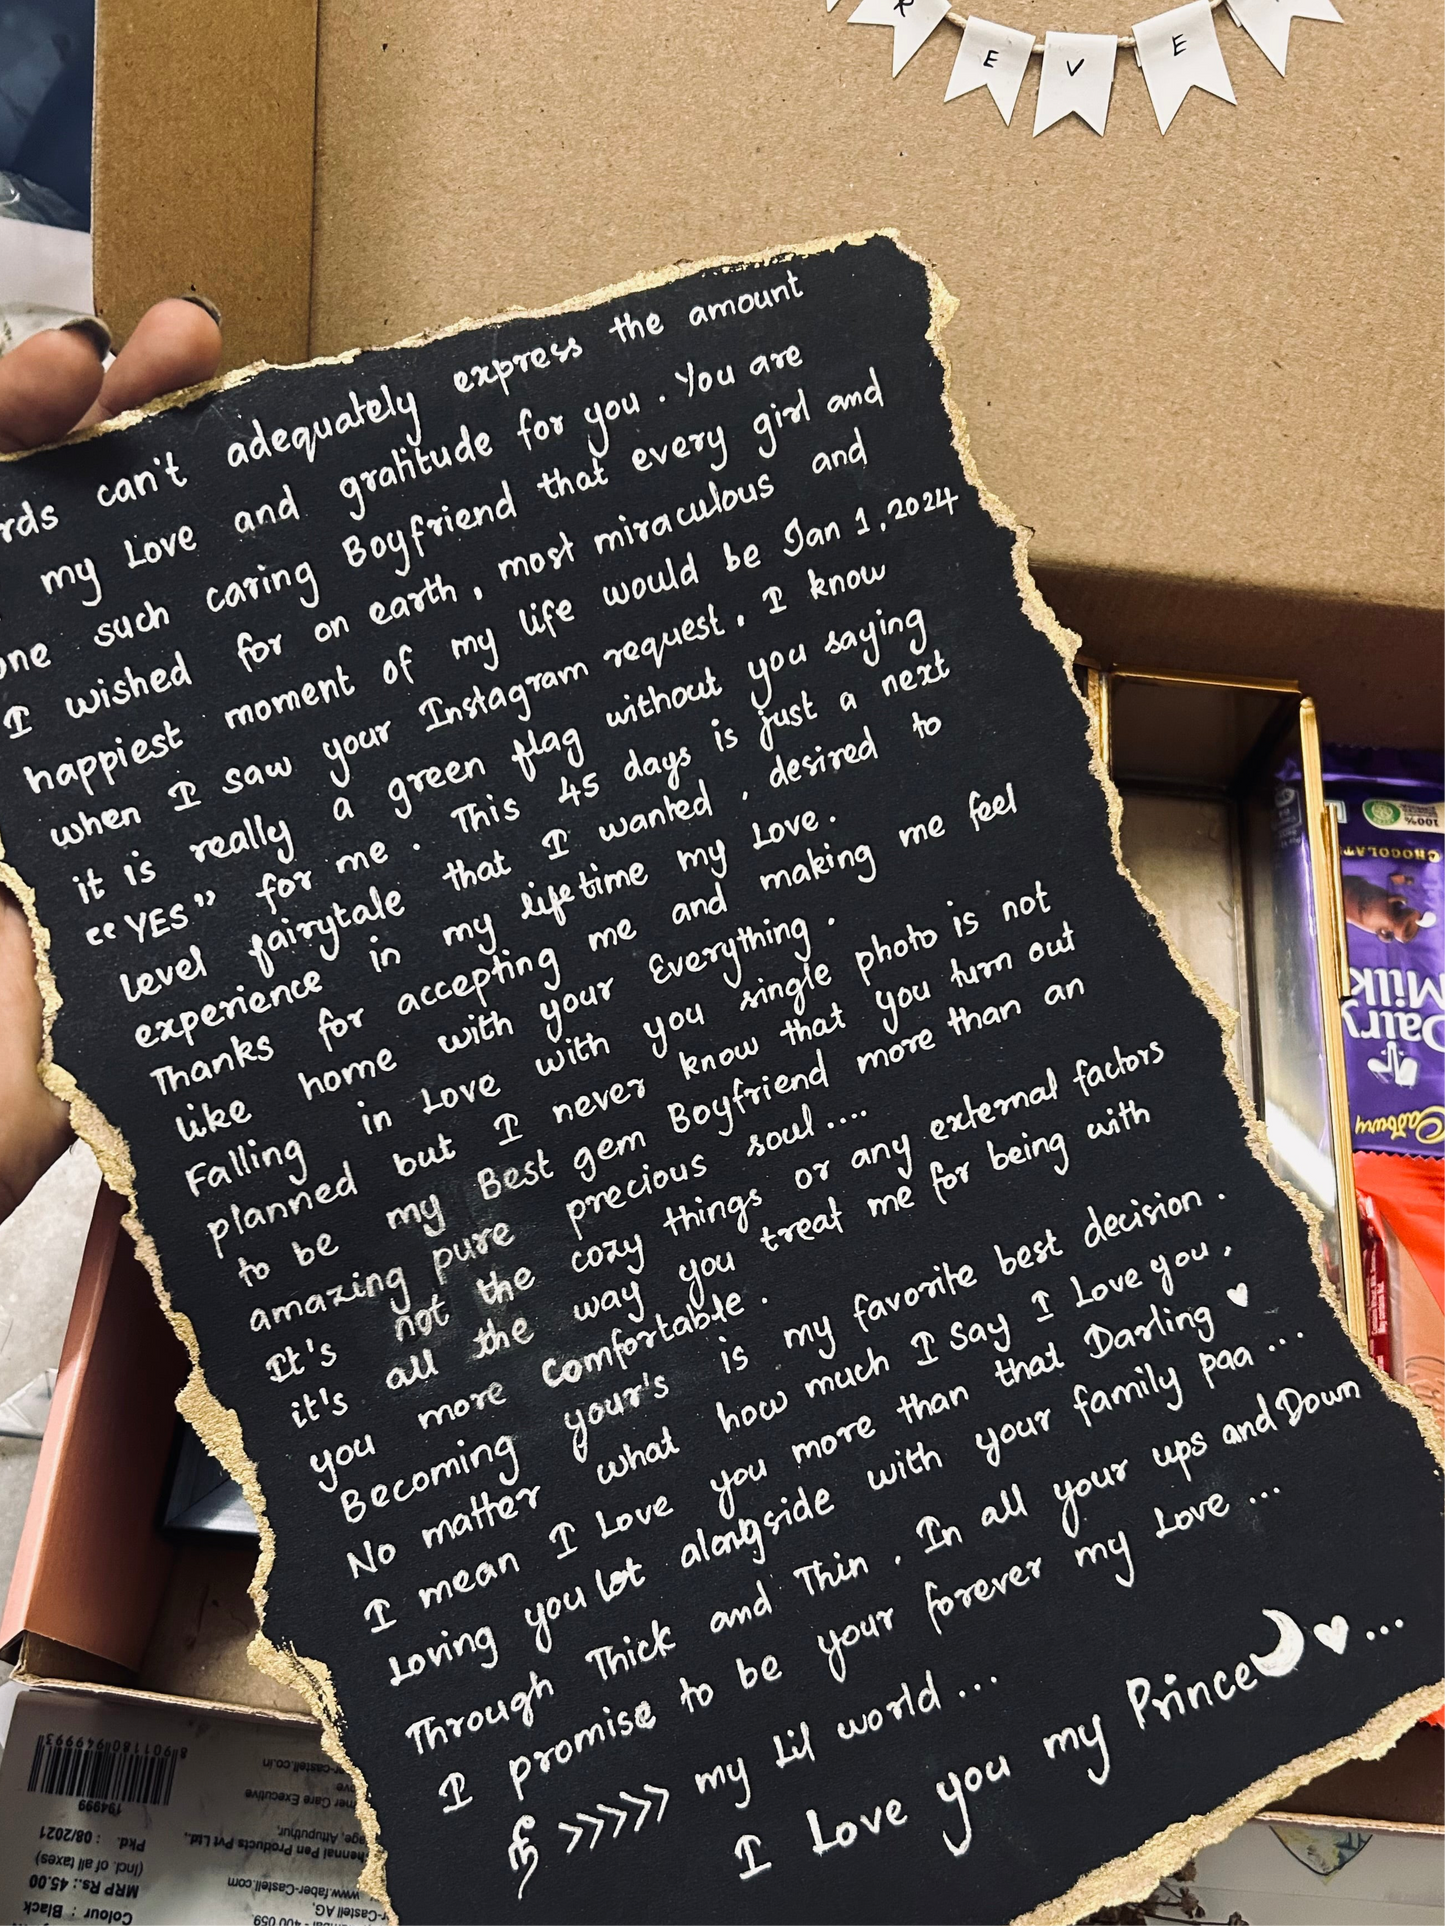 R E V E
rds can't adequately express the amount
my Love and gratitude for you. You are
one such caring Boyfriend that every girl and
I wished for on earth, most miraculous and
happiest moment of my life would be Jan 1, 2024
when I saw your Instagram request. I know
it is really a green flag without you saying
"YES" for me. This 45 days is just a next
level fairytale that I wanted, desired to
experience in my lifetime my Love.
Thanks for accepting me and making me feel
like home with your Everything.
Falling in Love with you single photo is not
planned but I never know that you turn out
to be my Best gem Boyfriend more than an
amazing pure precious soul....
It's not the cozy things or any external factors
it's all the way you treat me for being with
you more comfortable.
Becoming your's is my favorite best decision.
No matter what how much I Say I Love you,
I mean I Love you more than that Darling ♥
Loving you lot alongside with your family paa...
Through Thick and Thin. In all your ups and Down
I promise to be your forever my Love...
நீ >>>>> my Lil world...
I Love you my Prince🌙♥...
CHOCOLAT
100%
Dairy
Milk
Cadbury
8901180949993
194999
Pkd. : 08/2021
MRP Rs.: 45.00
(Incl. of all taxes)
Colour : Black
mer Care Executive
r-castell.co.in
age, Attuputhur,
hennai Pen Products Pvt Ltd.,
www.faber-Castell.com
r-Castell AG,
- 400 059.